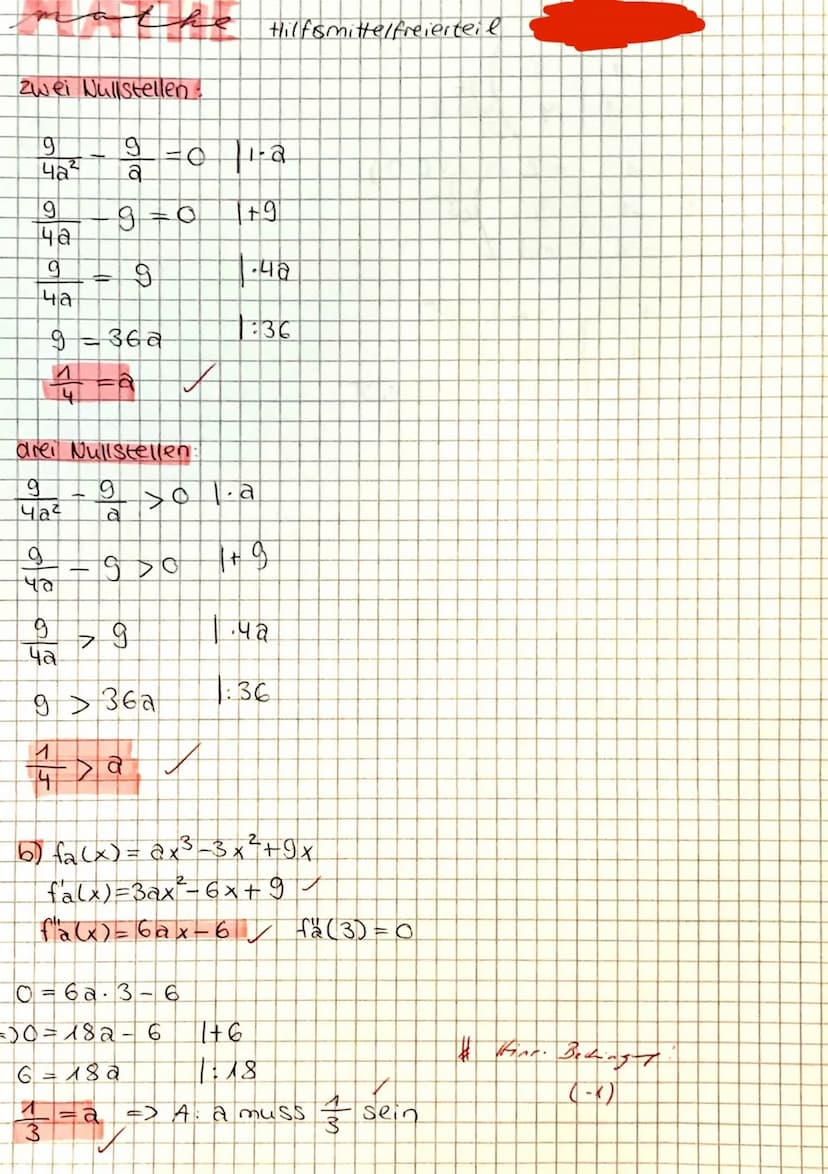 MATHE mathe Hilfsmittelfreierteil
zwei Nullstellen:
9/4a² - 9/a = 0 |1·a
9/4a - 9 = 0 |+9
9/4a = 9 |·4a
9 = 36a |:36
1/4 = a ✓
drei Nullstellen:
9/4a² - 9/a > 0 |·a
9/4a - 9 > 0 |+9
9/4a > 9 |·4a
9 > 36a |:36
1/4 > a ✓
b) fa(x) = ax³-3x²+9x
f'a(x)=3ax²-6x+9 ✓
f"a(x)=6ax-6 ✓ f"a(3)=0
0 = 6a·3-6
=> 0=18a-6 |+6
6 = 18a |:18
1/3 = a ✓ => A: a muss 1/3 sein ✓
Hinr. Bedingung:
(-1)